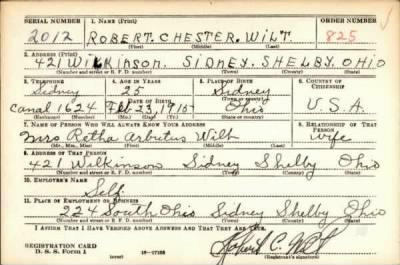 SERIAL NUMBER 1. NAME (Print) ORDER NUMBER
2012 ROBERT. CHESTER. WILT. 825
(First) (Middle) (Last)
2. ADDRESS (Print)
421 WILKINSON. SIDNEY. SHELBY. OHIO
(Number and street or R. F. D. number) (Town) (County) (State)
3. TELEPHONE 4. AGE IN YEARS 5. PLACE OF BIRTH 6. COUNTRY OF CITIZENSHIP
Sidney 25 Sidney
DATE OF BIRTH (Town or county)
Canal 1624 Feb 23, 1915 Ohio U.S.A.
(Exchange) (Number) (Mo.) (Day) (Yr.) (State or country)
7. NAME OF PERSON WHO WILL ALWAYS KNOW YOUR ADDRESS 8. RELATIONSHIP OF THAT PERSON
Mrs Retha Arbutus Wilt Wife
(Mr., Mrs., Miss) (First) (Middle) (Last)
9. ADDRESS OF THAT PERSON
421 Wilkinson Sidney Shelby Ohio
(Number and street or R. F. D. number) (Town) (County) (State)
10. EMPLOYER'S NAME
Self.
11. PLACE OF EMPLOYMENT OR BUSINESS
224 South Ohio Sidney Shelby Ohio
(Number and street or R. F. D. number) (Town) (County) (State)
I AFFIRM THAT I HAVE VERIFIED ABOVE ANSWERS AND THAT THEY ARE TRUE.
REGISTRATION CARD
D. S. S. Form 1 (over) Robert C. Wilt
(Registrant's signature)